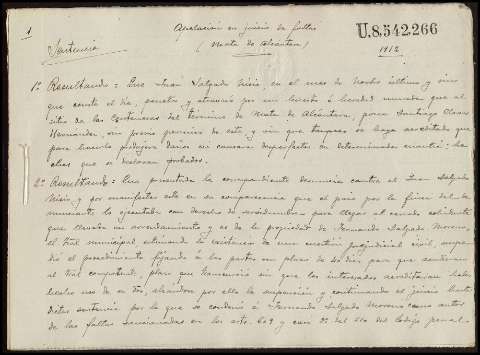 1
Apelación en juicio de faltas
U.8.542.266
(Mata de Alcántara)
1912
Sentencia
1º Resultando: Que Juan Salgado Nisio, en el mes de Marzo último y sin
que conste el día, penetró y atravesó por un terreno ó heredad murada que al
sitio de las del término de Mata de Alcántara, posee Santiago Claver
Hernández, sin previo permiso de este, y sin que tampoco se haya acreditado que
para hacerlo produjera daños ni causara desperfectos en determinada cuantía: he
chos que se declaran probados.
2º Resultando: Que presentada la correspondiente denuncia contra el Juan Salgado
Nisio, y por manifestar este en su comparecencia que el paso por la finca del de
nunciante lo ejecutaba con derecho de servidumbre para llegar al cercado colindante
que llevaba en arrendamiento y es de la propiedad de Fernando Salgado Moreno,
el Tral municipal estimando la existencia de una cuestión prejudicial civil, suspen
dió el procedimiento fijando á las partes un plazo de 40 días para que acudieran
al Tral competente, plazo que transcurrió sin que los interesados acreditaran haber
hecho uso de su dro, alzándose por ello la suspensión y continuando el juicio hasta
dictar sentencia por la que se condenó á Fernando Salgado Moreno como autor
de las faltas sancionadas en los arts. 609 y del 610 del Código penal